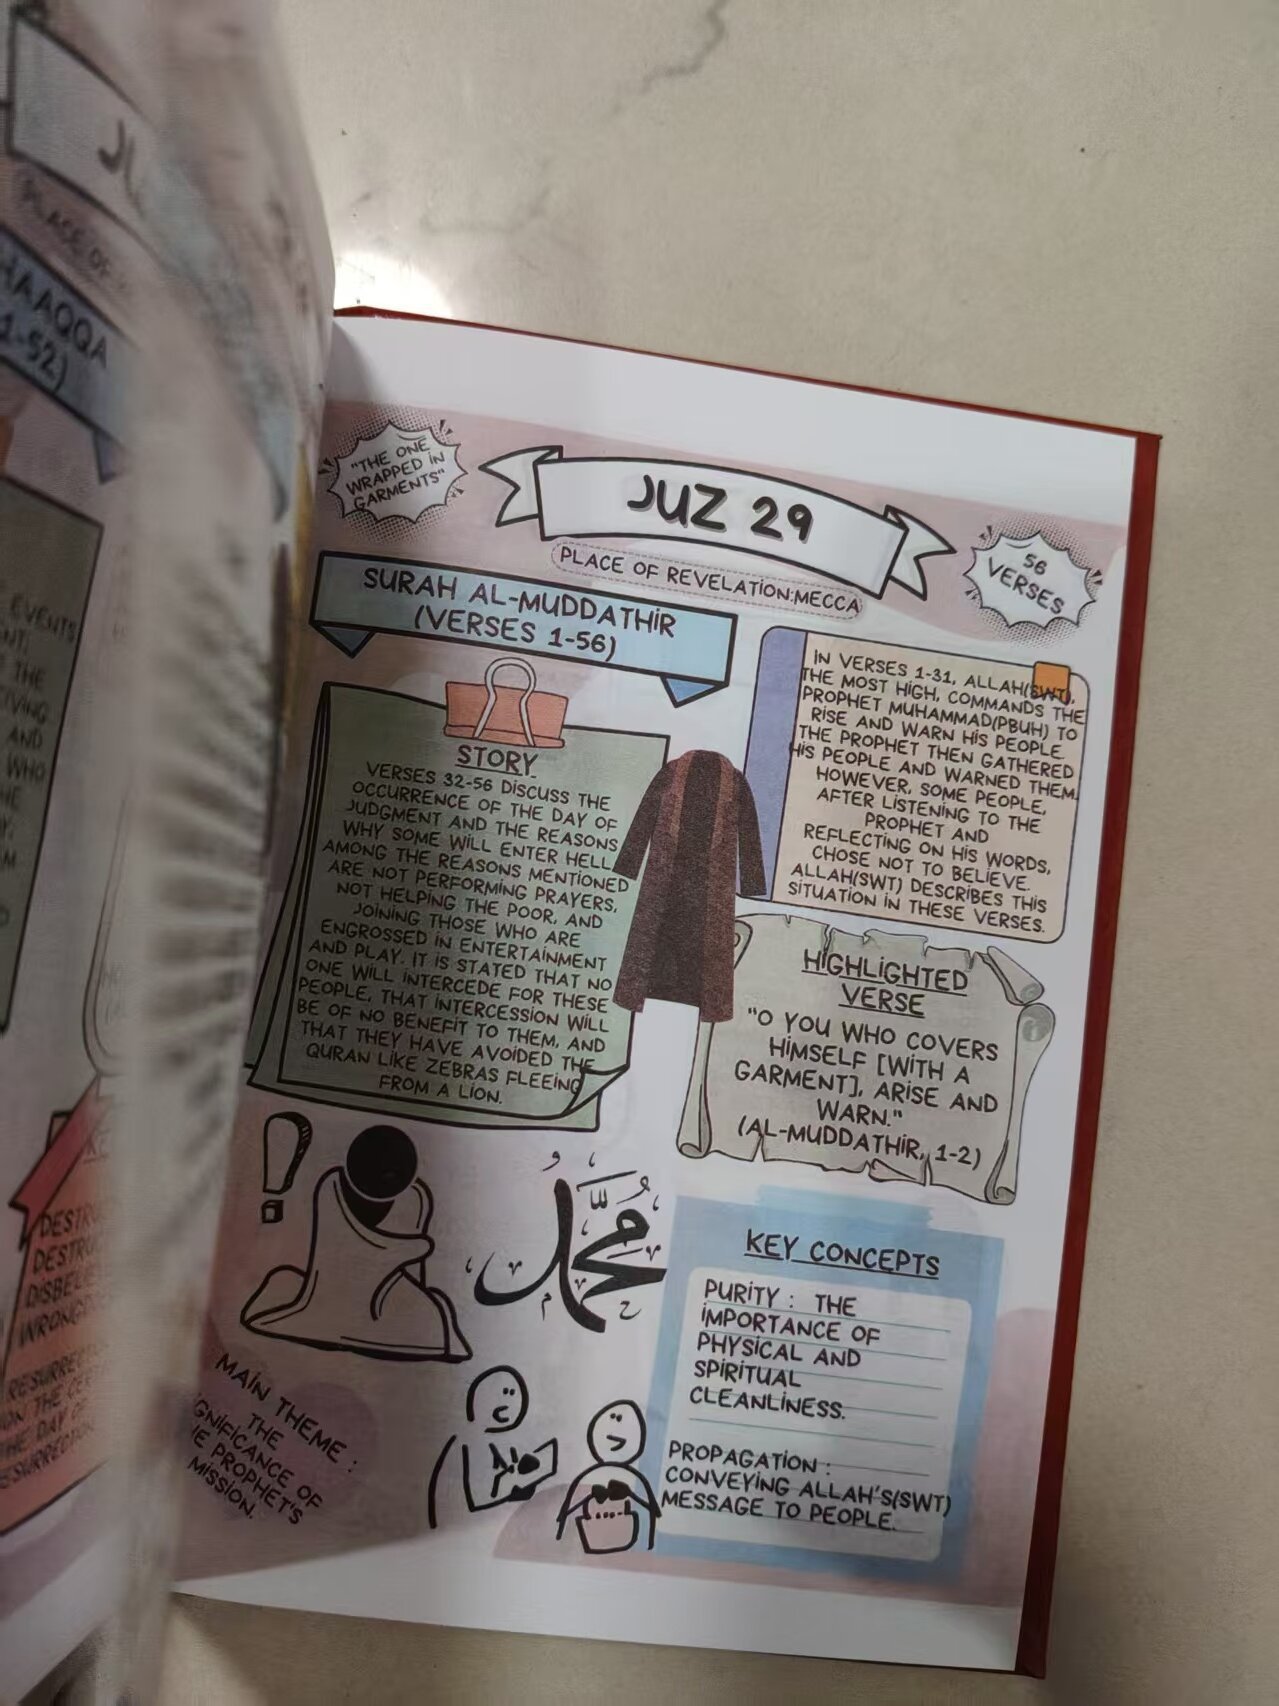 JU
PLACE OF
HAAQQA
1-52)
EVENTS
THE
AND
WHO
"THE ONE
WRAPPED IN
GARMENTS"
JUZ 29
56
VERSES
PLACE OF REVELATION:MECCA
SURAH AL-MUDDATHIR
(VERSES 1-56)
IN VERSES 1-31, ALLAH(SWT),
THE MOST HIGH, COMMANDS THE
PROPHET MUHAMMAD(PBUH) TO
RISE AND WARN HIS PEOPLE.
THE PROPHET THEN GATHERED
HIS PEOPLE AND WARNED THEM.
HOWEVER, SOME PEOPLE,
AFTER LISTENING TO THE
PROPHET AND
REFLECTING ON HIS WORDS,
CHOSE NOT TO BELIEVE.
ALLAH(SWT) DESCRIBES THIS
SITUATION IN THESE VERSES.
STORY
VERSES 32-56 DISCUSS THE
OCCURRENCE OF THE DAY OF
JUDGMENT AND THE REASONS
WHY SOME WILL ENTER HELL.
AMONG THE REASONS MENTIONED
ARE NOT PERFORMING PRAYERS,
NOT HELPING THE POOR, AND
JOINING THOSE WHO ARE
ENGROSSED IN ENTERTAINMENT
AND PLAY. IT IS STATED THAT NO
ONE WILL INTERCEDE FOR THESE
PEOPLE, THAT INTERCESSION WILL
BE OF NO BENEFIT TO THEM, AND
THAT THEY HAVE AVOIDED THE
QURAN LIKE ZEBRAS FLEEING
FROM A LION.
HIGHLIGHTED
VERSE
"O YOU WHO COVERS
HIMSELF [WITH A
GARMENT], ARISE AND
WARN."
(AL-MUDDATHIR, 1-2)
محمد
MAIN THEME :
THE
GNIFICANCE OF
PROPHET'S
MISSION.
KEY CONCEPTS
PURITY : THE
IMPORTANCE OF
PHYSICAL AND
SPIRITUAL
CLEANLINESS.
PROPAGATION :
CONVEYING ALLAH'S(SWT)
MESSAGE TO PEOPLE.